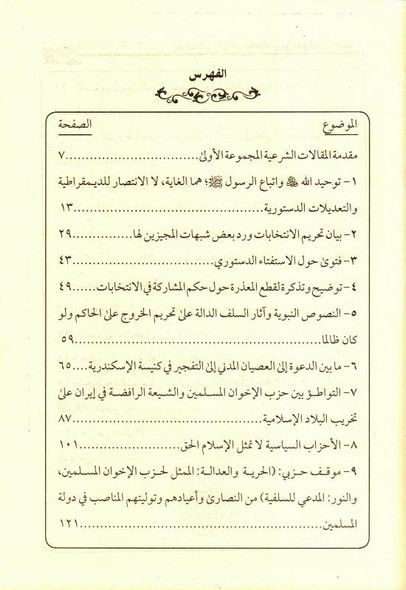 الفهرس
الموضوع الصفحة
مقدمة المقالات الشرعية المجموعة الأولى................................٧
١- توحيد الله ﷻ واتباع الرسول ﷺ؛ هما الغاية، لا الانتصار للديمقراطية
والتعديلات الدستورية................................١٣
٢- بيان تحريم الانتخابات ورد بعض شبهات المجيزين لها...............٢٩
٣- فتوى حول الاستفتاء الدستوري................................٤٣
٤- توضيح وتذكرة لقطع المعذرة حول حكم المشاركة في الانتخابات......٤٩
٥- النصوص النبوية وآثار السلف الدالة على تحريم الخروج على الحاكم ولو
كان ظالما................................٥٩
٦- ما بين الدعوة إلى العصيان المدني إلى التفجير في كنيسة الإسكندرية....٦٥
٧- التواطؤ بين حزب الإخوان المسلمين والشيعة الرافضة في إيران على
تخريب البلاد الإسلامية................................٨٧
٨- الأحزاب السياسية لا تمثل الإسلام الحق.........................١٠١
٩- موقف حزبي: (الحرية والعدالة: الممثل لحزب الإخوان المسلمين،
والنور: المدعي للسلفية) من النصارى وأعيادهم وتوليتهم المناصب في دولة
المسلمين................................١٢١